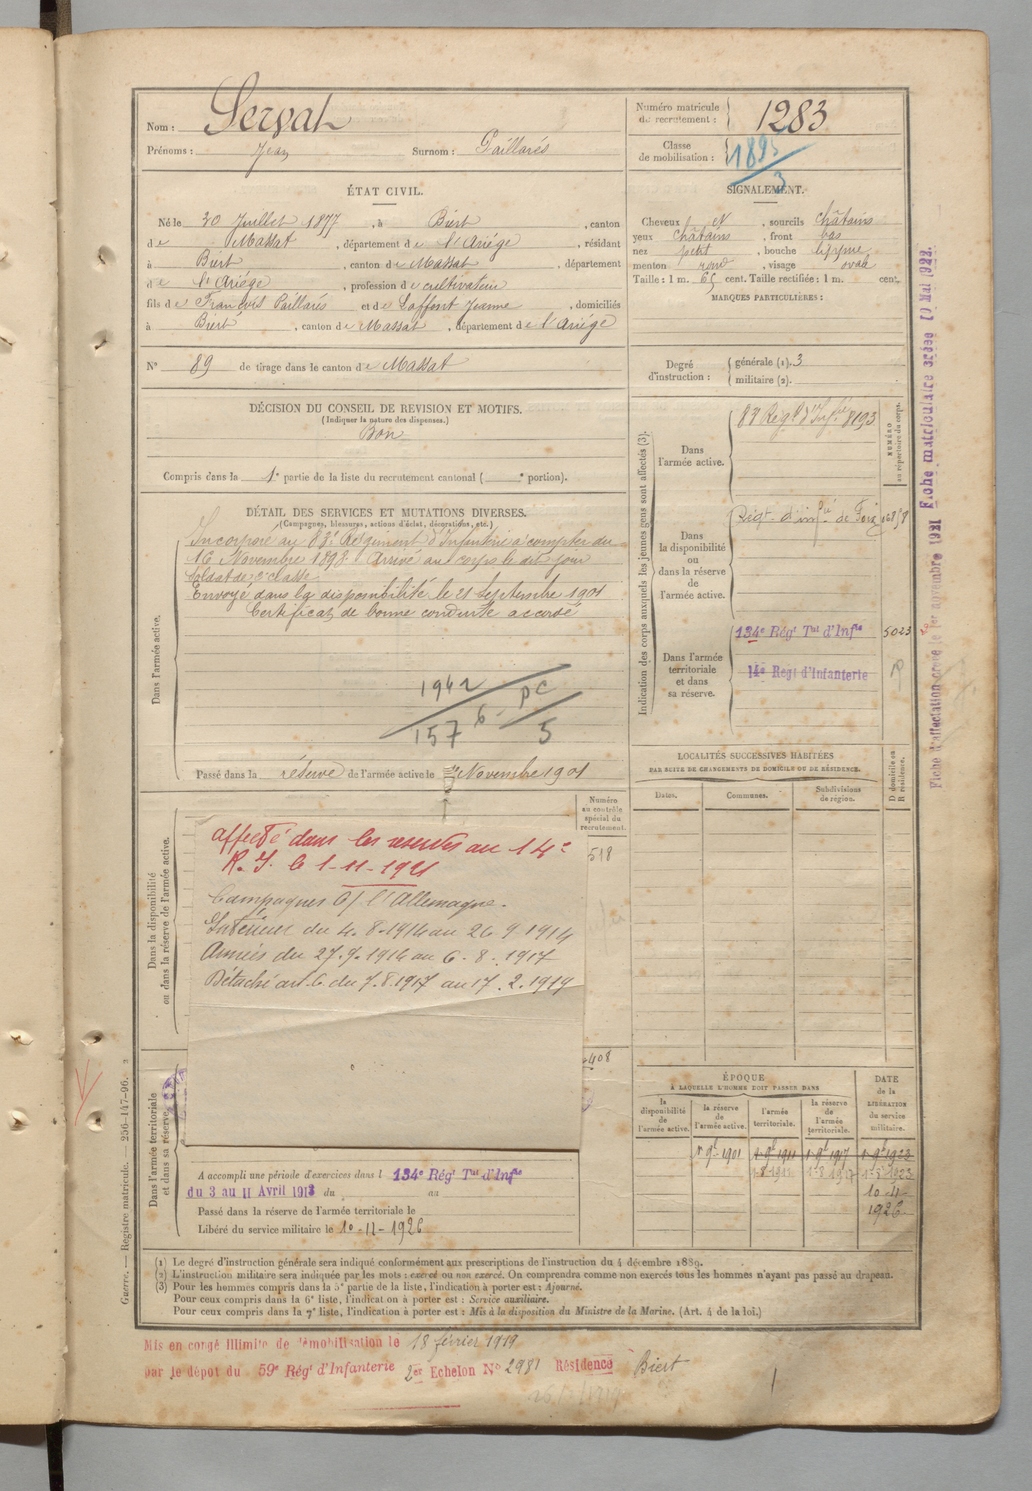 Nom : Servat
Prénoms : Jean Surnom : Paillarés
Numéro matricule de recrutement : 1283
Classe de mobilisation : 1895
3
ÉTAT CIVIL.
Né le 30 Juillet 1877, à Biert, canton
de Massat, département de l'Ariège, résidant
à Biert, canton de Massat, département
de l'Ariège, profession de cultivateur
fils de François Paillarés et de Laffont Jeanne, domiciliés
à Biert, canton de Massat, département de l'Ariège
N° 89 de tirage dans le canton de Massat
SIGNALEMENT.
Cheveux N, sourcils châtains
yeux châtains, front bas
nez petit, bouche moyenne
menton rond, visage ovale
Taille : 1 m. 65 cent. Taille rectifiée : 1 m. cent.
MARQUES PARTICULIÈRES :
Degré d'instruction : générale (1). 3
militaire (2).
DÉCISION DU CONSEIL DE REVISION ET MOTIFS.
(Indiquer la nature des dispenses.)
Bon
Compris dans la 1e partie de la liste du recrutement cantonal ( e portion).
DÉTAIL DES SERVICES ET MUTATIONS DIVERSES.
(Campagnes, blessures, actions d'éclat, décorations, etc.)
Dans l'armée active.
Incorporé au 83e Régiment d'Infanterie à compter du
16 Novembre 1898. Arrivé au corps le dit jour
soldat de 2e classe.
Envoyé dans la disponibilité le 21 Septembre 1901
Certificat de bonne conduite accordé
1942 6 - PC
157 5
Passé dans la réserve de l'armée active le 1er Novembre 1901
Indication des corps auxquels les jeunes gens sont affectés (3).
NUMÉRO au répertoire du corps.
Dans l'armée active.
83 Régt d'Infie 8193
Dans la disponibilité ou dans la réserve de l'armée active.
Régt d'infie de Foix
Dans l'armée territoriale et dans sa réserve.
134e Régt Tal d'Infie 5023
14e Regt d'Infanterie
Fiche matriculaire créée
Fiche d'affectation créée le 1er novembre 1921
LOCALITÉS SUCCESSIVES HABITÉES
PAR SUITE DE CHANGEMENTS DE DOMICILE OU DE RÉSIDENCE.
Dates. Communes. Subdivisions de région. D domicile ou R résidence.
Dans la disponibilité ou dans la réserve de l'armée active.
Numéro au contrôle spécial du recrutement.
518
affecté dans les réserves au 14e
R. I. le 1-11-1921
Campagnes C/ l'Allemagne.
Intérieur du 4.8.1914 au 26.9.1914
Armées du 27.9.1914 au 6.8.1917
Détaché art. 6 du 7.8.1917 au 17.2.1919
408
Dans l'armée territoriale et dans sa réserve.
A accompli une période d'exercices dans l 134e Régt Tal d'Infie
du 3 au 11 Avril 1913 du au
Passé dans la réserve de l'armée territoriale le
Libéré du service militaire le 10-11-1926
ÉPOQUE
A LAQUELLE L'HOMME DOIT PASSER DANS
la disponibilité de l'armée active. la réserve de l'armée active. l'armée territoriale. la réserve de l'armée territoriale. DATE de la LIBÉRATION du service militaire.
1 9e 1901 1 9e 1911 1 9e 1917 1 9e 1923
1-8-1911 1-8-1917 1-8-1923
10-11-
1926
(1) Le degré d'instruction générale sera indiqué conformément aux prescriptions de l'instruction du 4 décembre 1889.
(2) L'instruction militaire sera indiquée par les mots : exercé ou non exercé. On comprendra comme non exercés tous les hommes n'ayant pas passé au drapeau.
(3) Pour les hommes compris dans la 5e partie de la liste, l'indication à porter est : Ajourné.
Pour ceux compris dans la 6e liste, l'indication à porter est : Service auxiliaire.
Pour ceux compris dans la 7e liste, l'indication à porter est : Mis à la disposition du Ministre de la Marine. (Art. 4 de la loi.)
Guerre. — Registre matricule. — 256-147-96.
Mis en congé illimité de démobilisation le 18 février 1919
par le dépôt du 59e Régt d'Infanterie 2er Echelon N° 2981 Résidence Biert